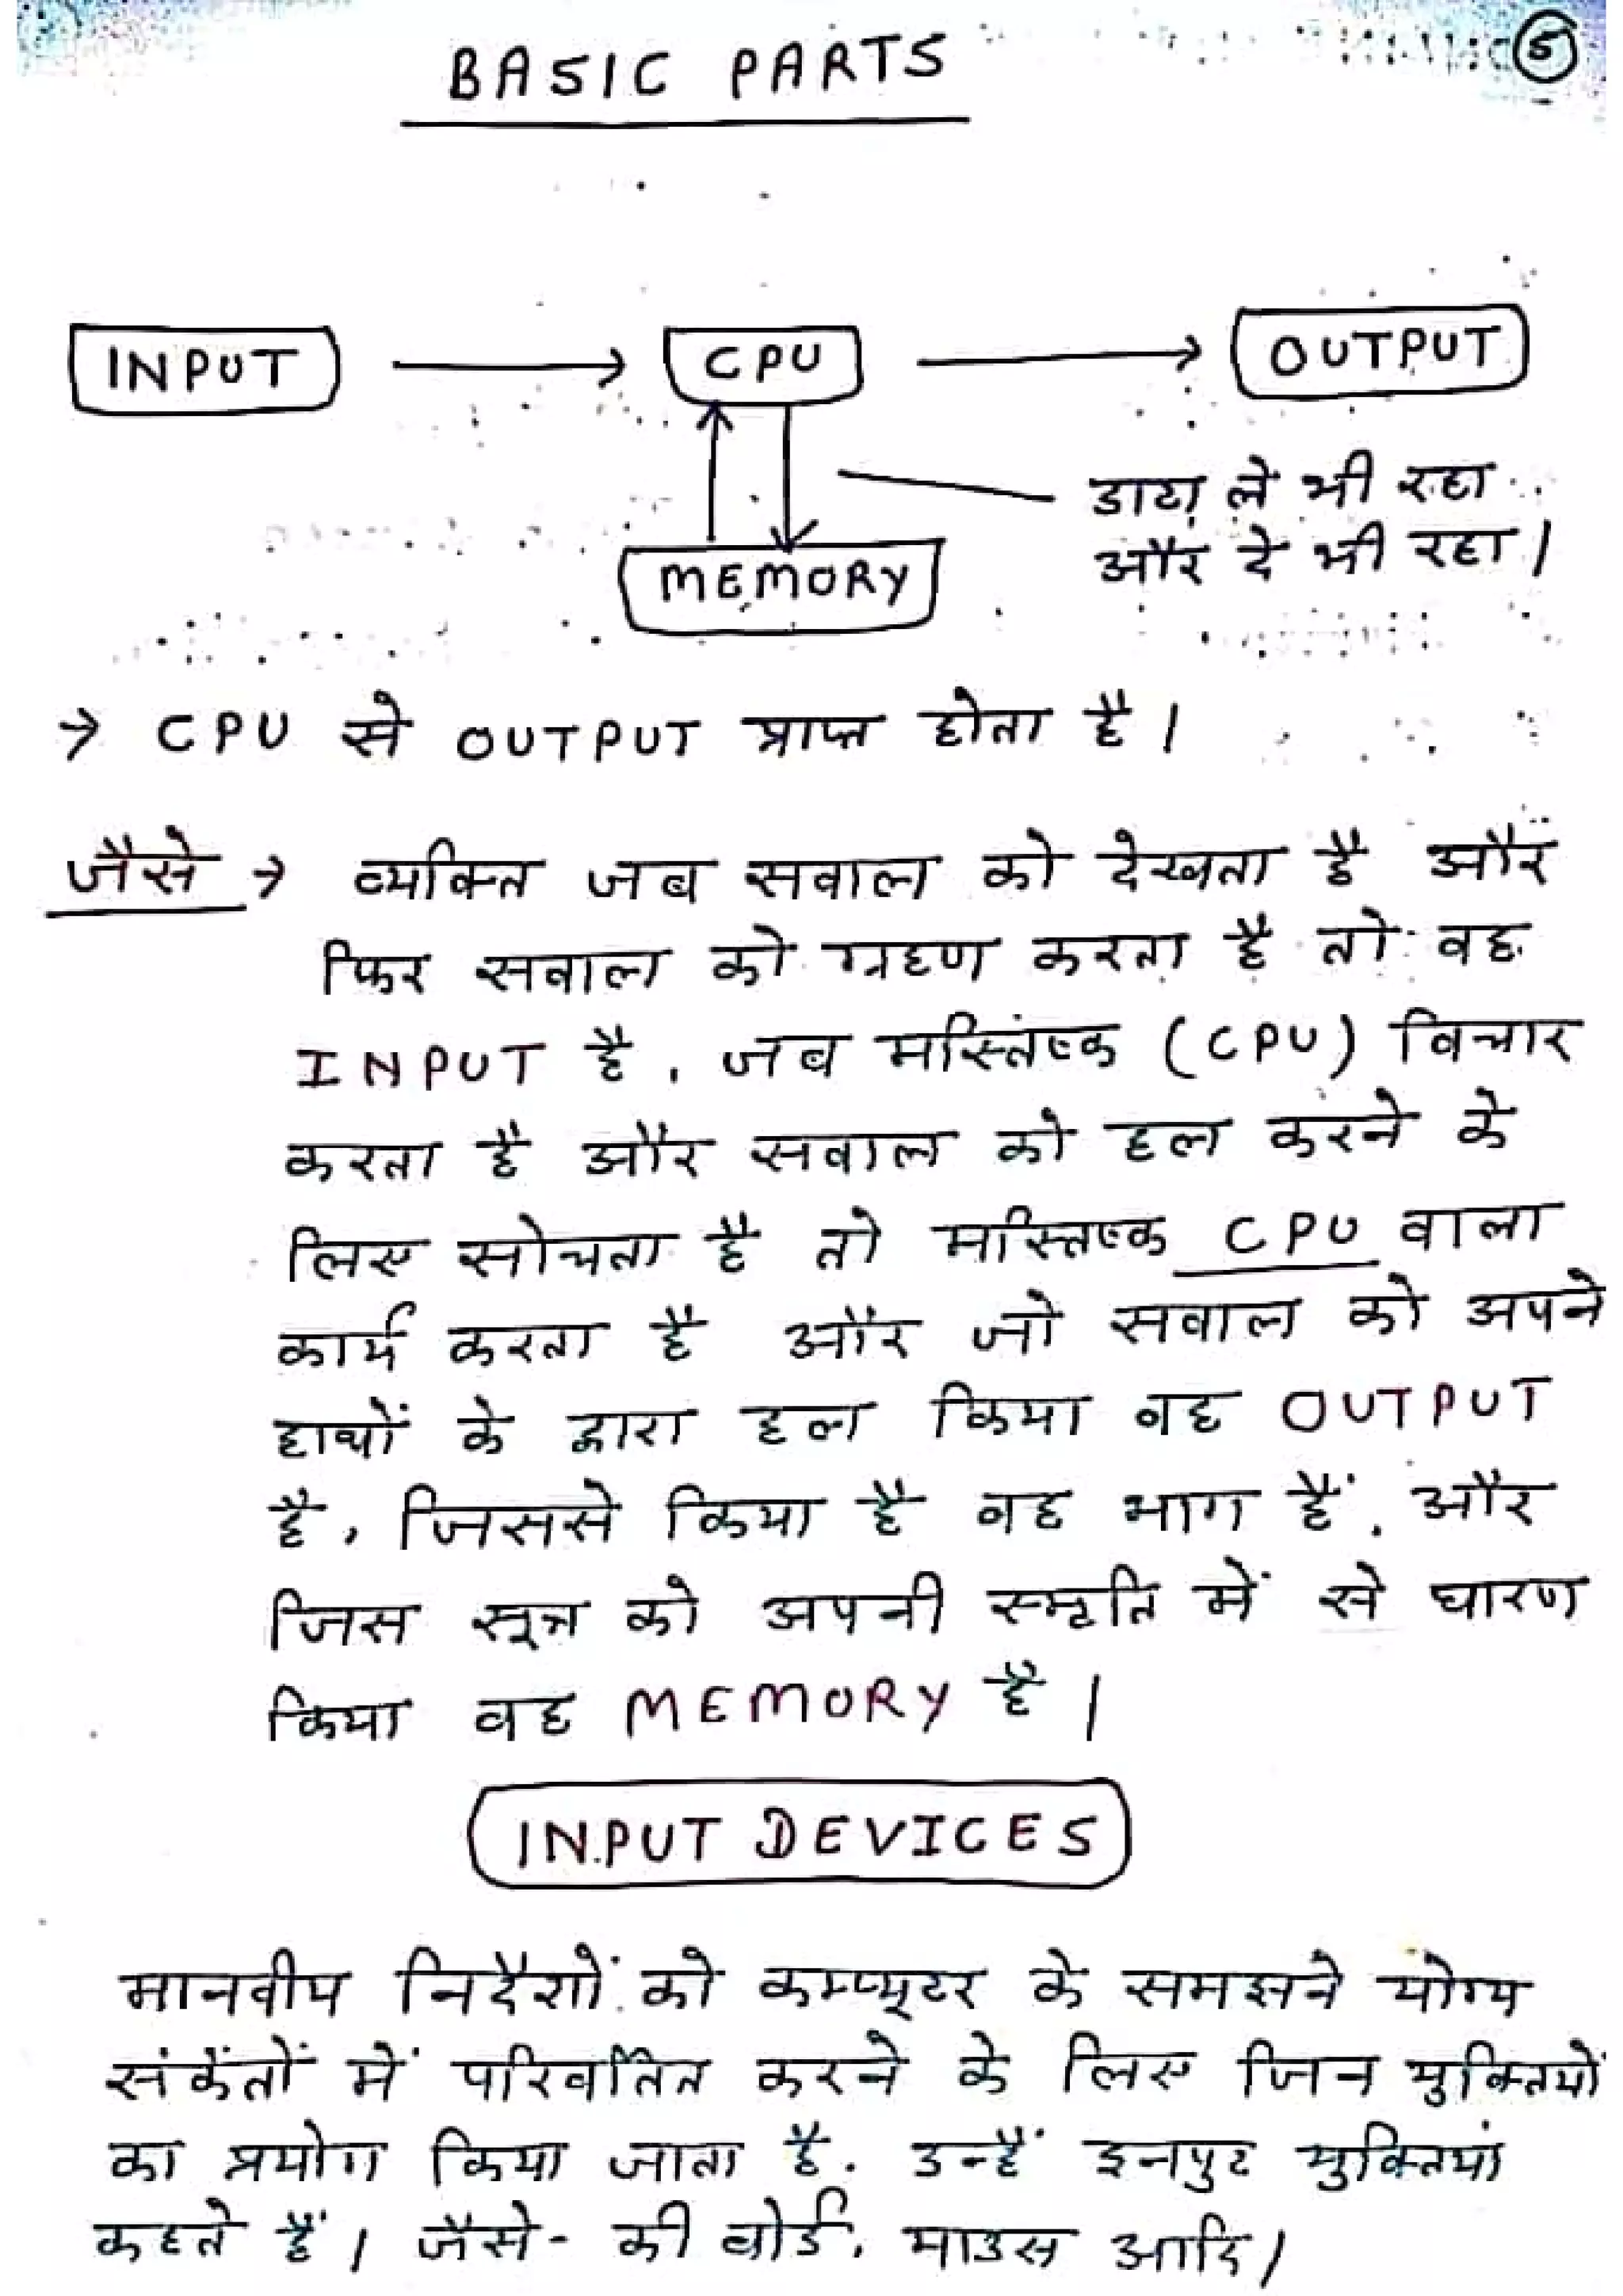 BASIC PARTS
5
INPUT → CPU → OUTPUT
डाटा ले भी रहा
और दे भी रहा।
MEMORY
→ CPU से OUTPUT प्राप्त होता है।
जैसे → व्यक्ति जब सवाल को देखता है और
फिर सवाल को ग्रहण करता है तो वह
INPUT है, जब मस्तिष्क (CPU) विचार
करता है और सवाल को हल करने के
लिए सोचता है तो मस्तिष्क CPU वाला
कार्य करता है और जो सवाल को अपने
हाथों के द्वारा हल किया वह OUTPUT
है, जिससे किया है वह भाग हैं, और
जिस सूत्र को अपनी स्मृति में से धारण
किया वह MEMORY है।
INPUT DEVICES
मानवीय निर्देशों को कम्प्यूटर के समझने योग्य
संकेंतों में परिवर्तित करने के लिए जिन युक्तियों
का प्रयोग किया जाता है, उन्हैं इनपुट युक्तियां
कहते हैं। जैसे- की बोर्ड, माउस आदि।